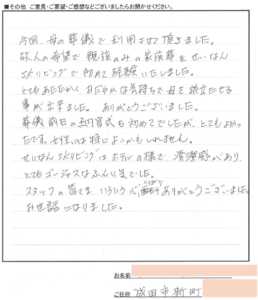 ■その他 ご意見・ご要望・ご感想などございましたらお聞かせください。
今回、母の葬儀で利用させて頂きました。
故人の希望で親族のみの家族葬をせいなん
SKリビングで初めて経験いたしました。
とてもあたたかく、おだやかな気持ちで母を旅立たせる
事が出来ました。ありがとうございました。
葬儀前日の納官式も初めてでしたが、とてもよかっ
たです。女性には特によいかもしれません。
せいなんSKリビングはホテルの様で、清潔感があり、
とてもゴージャスなふんい気でした。
スタッフの皆さま、いろいろ心配りありがとうございました。
お世話になりました。
お名前
ご住所 成田市新町